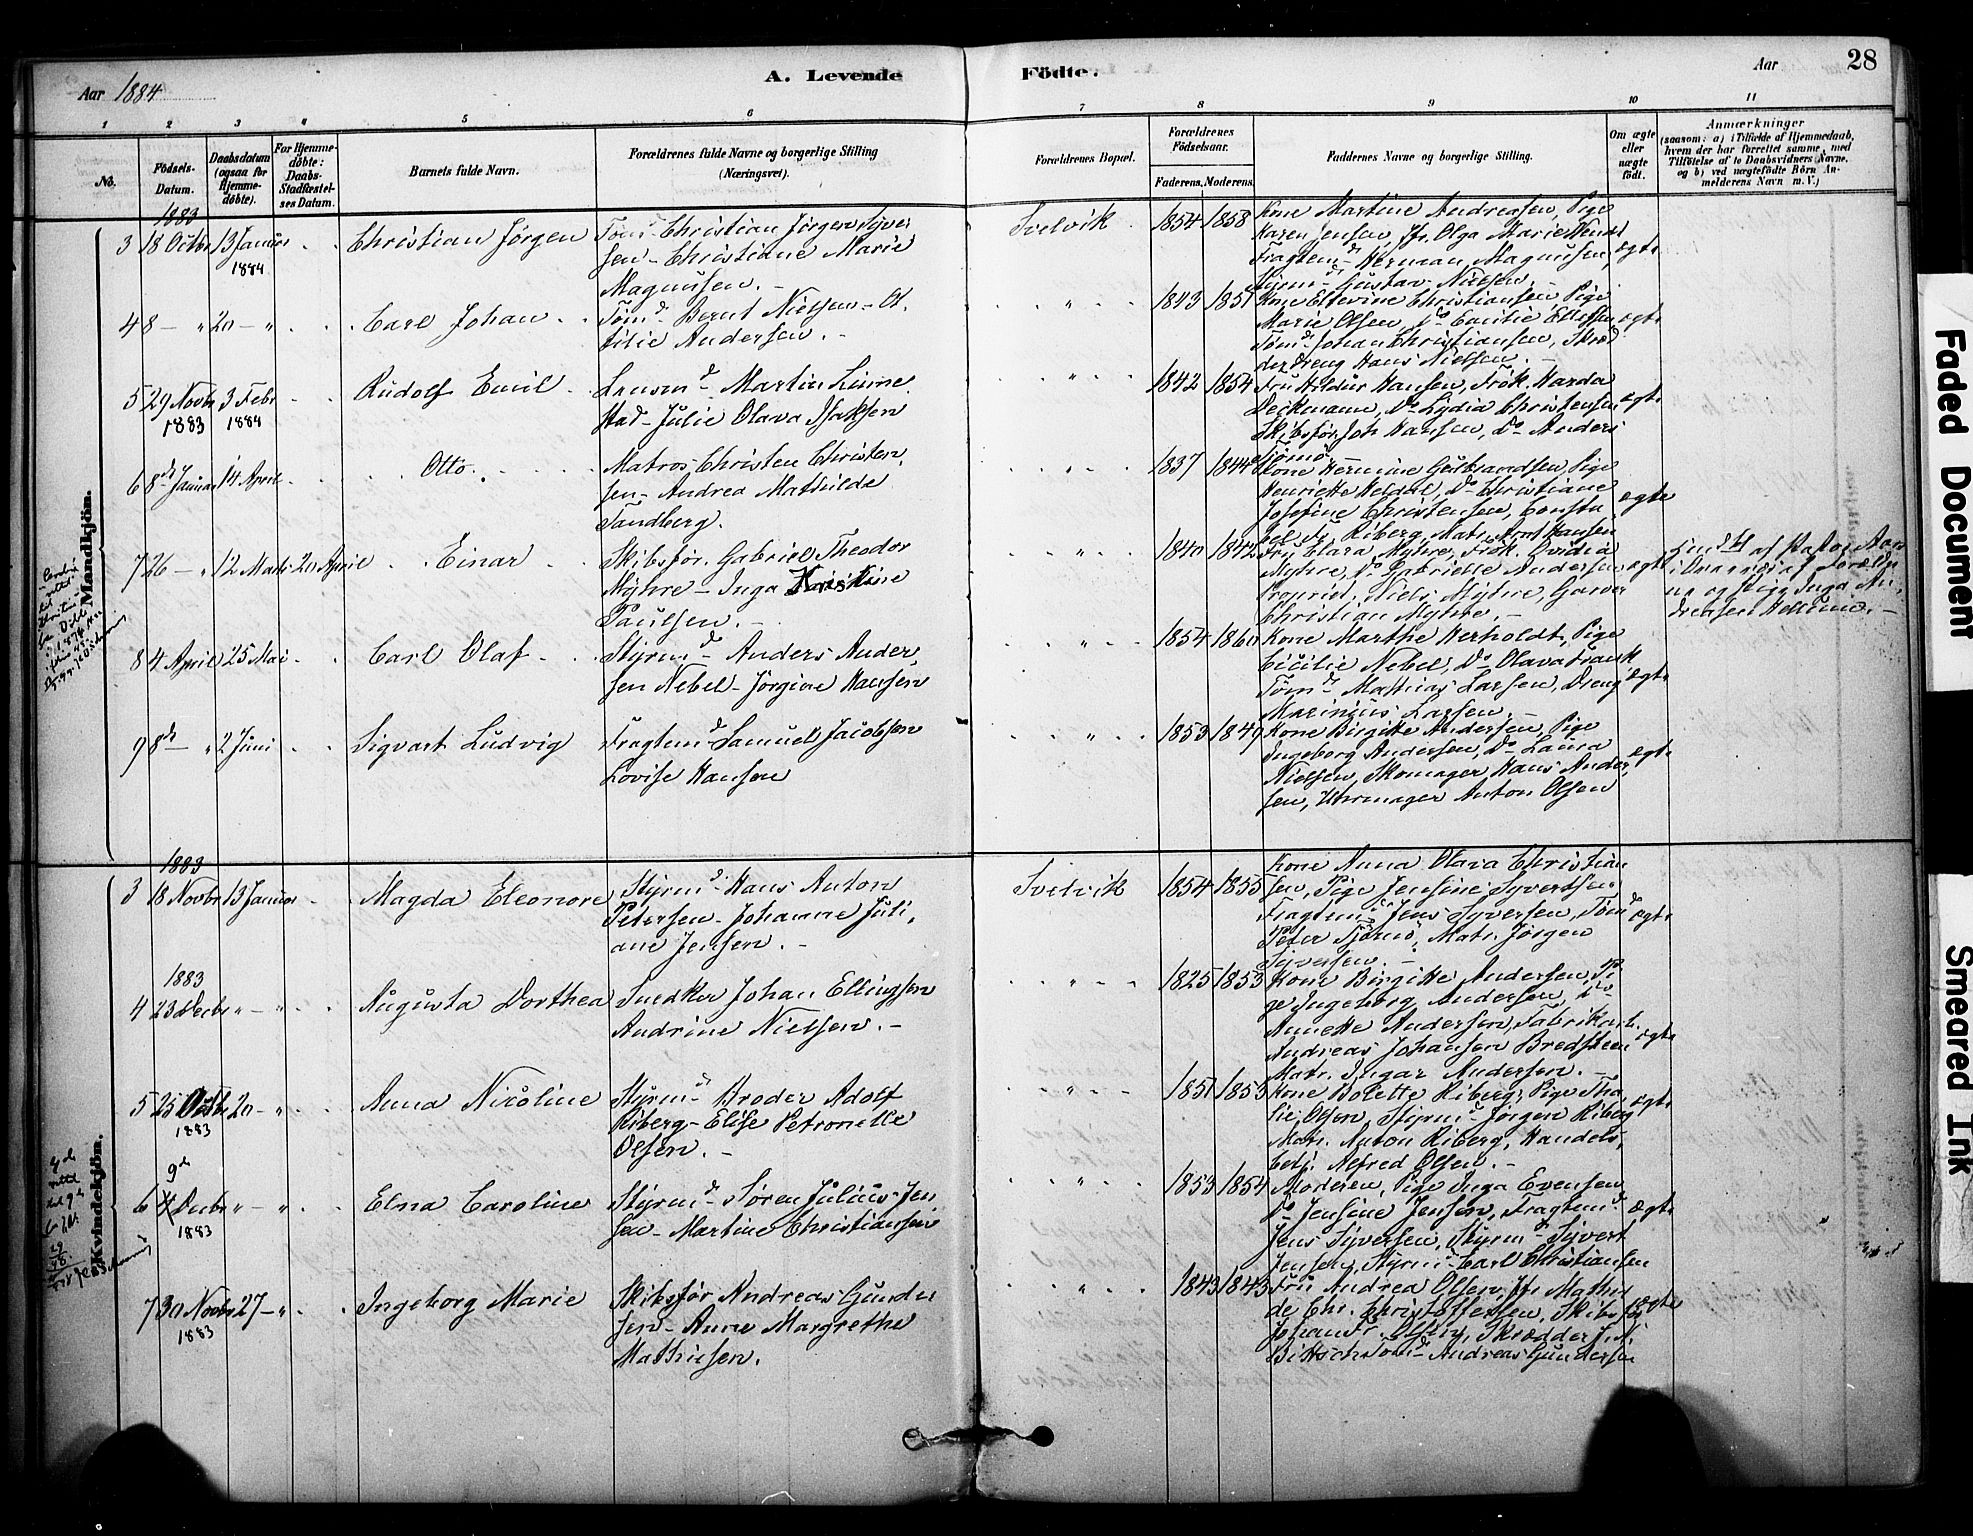 28
A. Levende Födte.
Aar 1884
Aar
1 2 3 4 5 6 7 8 9 10 11
No.
Födsels-
Datum.
Daabsdatum
(ogsaa for
Hjemme-
döbte).
For Hjemme-
döbte:
Daabs-
Stadfæstel-
ses Datum.
Barnets fulde Navn.
Forældrenes fulde Navne og borgerlige Stilling
(Næringsvei).
Forældrenes Bopæl.
Forældrenes
Födselsaar.
Faderens. Moderens.
Faddernes Navne og borgerlige Stilling.
Om ægte
eller
uægte
födt.
Anmærkninger
(saasom: a) i Tilfælde af Hjemmedaab,
hvem der har forrettet samme, med
Tilföielse af to Daabsvidners Navne.
og b) ved uægtefödte Börn An-
melderens Navn m. V.)
Mandkjön.
1883
3 18 Octbr 13 Januar
1884
Christian Jörgen
Tömd Christian Jörgen Syver
sen - Christiane Marie
Magnusen. -
Svelvik 1854 1858
Kone Martine Andreasen, Pige
Karen Jensen, Olga Marie
Fragtemd Herman Magnusen
Styrmd Gustav Nielsen. -
ægte
4 8 - " 20 - "
Carl Johan
Tömd Bernt Nielsen - Ot
tilie Andersen. -
" 1843 1851
Kone Christiansen, Pige
Marie Olsen, Do Emilie
Tömd Johan Christiansen, Skræd
derdreng Hans Nielsen. -
ægte
5 29 Novbr 3 Febr
1883 1884
Rudolf Emil
Lensmd Martin Linne
stad - Julie Olava Isaksen
" 1842 1854
Fru Hildur Hansen, Frök. Harda
Deckmann, Do Lydia Christensen
Skibsför. Joh Hansen, Do Anders
Tjömö
ægte
6 8de Januar 14 April
Otto.
Matros Christen Christen
sen - Andrea Mathilde
Tandberg.
" 1837 1844
Kone Hermine Gulbrandsen, Pige
Henriette Heldal, Do Christiane
Josefine Christensen,
Fr. Riberg, Matr. Hansen
ægte
7 26 - " 12 Marts 20 April
Einar
Skibsför. Gabriel Theodor
Myhre - Inga Kristine
Paulsen. -
" 1840 1842
Fru Clara Myhre, Frök. Ovidia
Myhre, Do Gabrielle Andersen
Propriet. Niels Myhre, Garver
Christian Myhre. -
ægte
af Pastor
af Foræld
ne og Pige Inga An
dreasen
8 4 April 25 Mai
Carl Olaf
Styrmd Anders Ander
sen Nebel - Jörgine Hansen
" 1854 1860
Kone Marthe Herholdt, Pige
Cicilie Nebel, Do Olava Frank
Tömd Mathias Larsen, Dreng
Marinius Larsen. -
ægte
9 8de - " 2 Juni
Sigvart Ludvig
Fragtemd Samuel Jacobsen
Lovise Hansen
" 1853 1849
Kone Birgitte Andersen, Pige
Ingeborg Andersen, Do Laura
Nielsen, Skomager Hans Ander
sen, Uhrmager Anton Olsen
ægte
Kvindekjön.
1883
3 18 Novbr 13 Januar
Magda Eleonore
Styrmd Hans Anton
Petersen - Johanne Juli
ane Jensen. -
Svelvik 1854 1855
Kone Anna Olava Christian
sen, Pige Jensine Syvertsen
Fragtemd Jens Syversen, Tömd
Peter Tjömö, Matr. Jörgen
Syversen. -
ægte
1883
4 23 Decbr " - "
Augusta Dorthea
Snedker Johan Ellingsen
Andrine Nielsen. -
" 1825 1853
Kone Birgitte Andersen, Pi
ge Ingeborg Andersen, Do
Annette Andersen, Fabrikarb.
Andreas Johansen Bredsteen
Matr. Ingar Andersen. -
ægte
5 25 Octbr 20 - "
1883
Anna Nicoline
Styrmd Broder Adolf
Riberg - Elise Petronelle
Olsen. -
" 1851 1853
Kone Bolette Riberg, Pige Tha
lie Olsen, Styrmd Jörgen Riberg
Matr. Anton Riberg, Handels
betj. Alfred Olsen. -
ægte
9de
6 4 Decbr " - "
1883
Elna Caroline
Styrmd Sören Julius Jen
sen - Martine Christiansen
" 1853 1854
Moderen, Pige Inga Evensen
Do Jensine Jensen, Fragtemd
Jens Syversen, Styrmd Syvert
Jensen, Styrmd Carl Christiansen
ægte
7 30 Novbr 27 - "
1883
Ingeborg Marie
Skibsför Andreas Gunder
sen - Anne Margrethe
Mathisen.
" 1843 1843
Fru Andrea Olsen, Jfr. Mathil
de Chr. Christoffersen, Skibsför
Johan Fr. Olsen, Skrædder J. N.
Tömd Andreas Gundersen
ægte
Faded Document
Smeared Ink